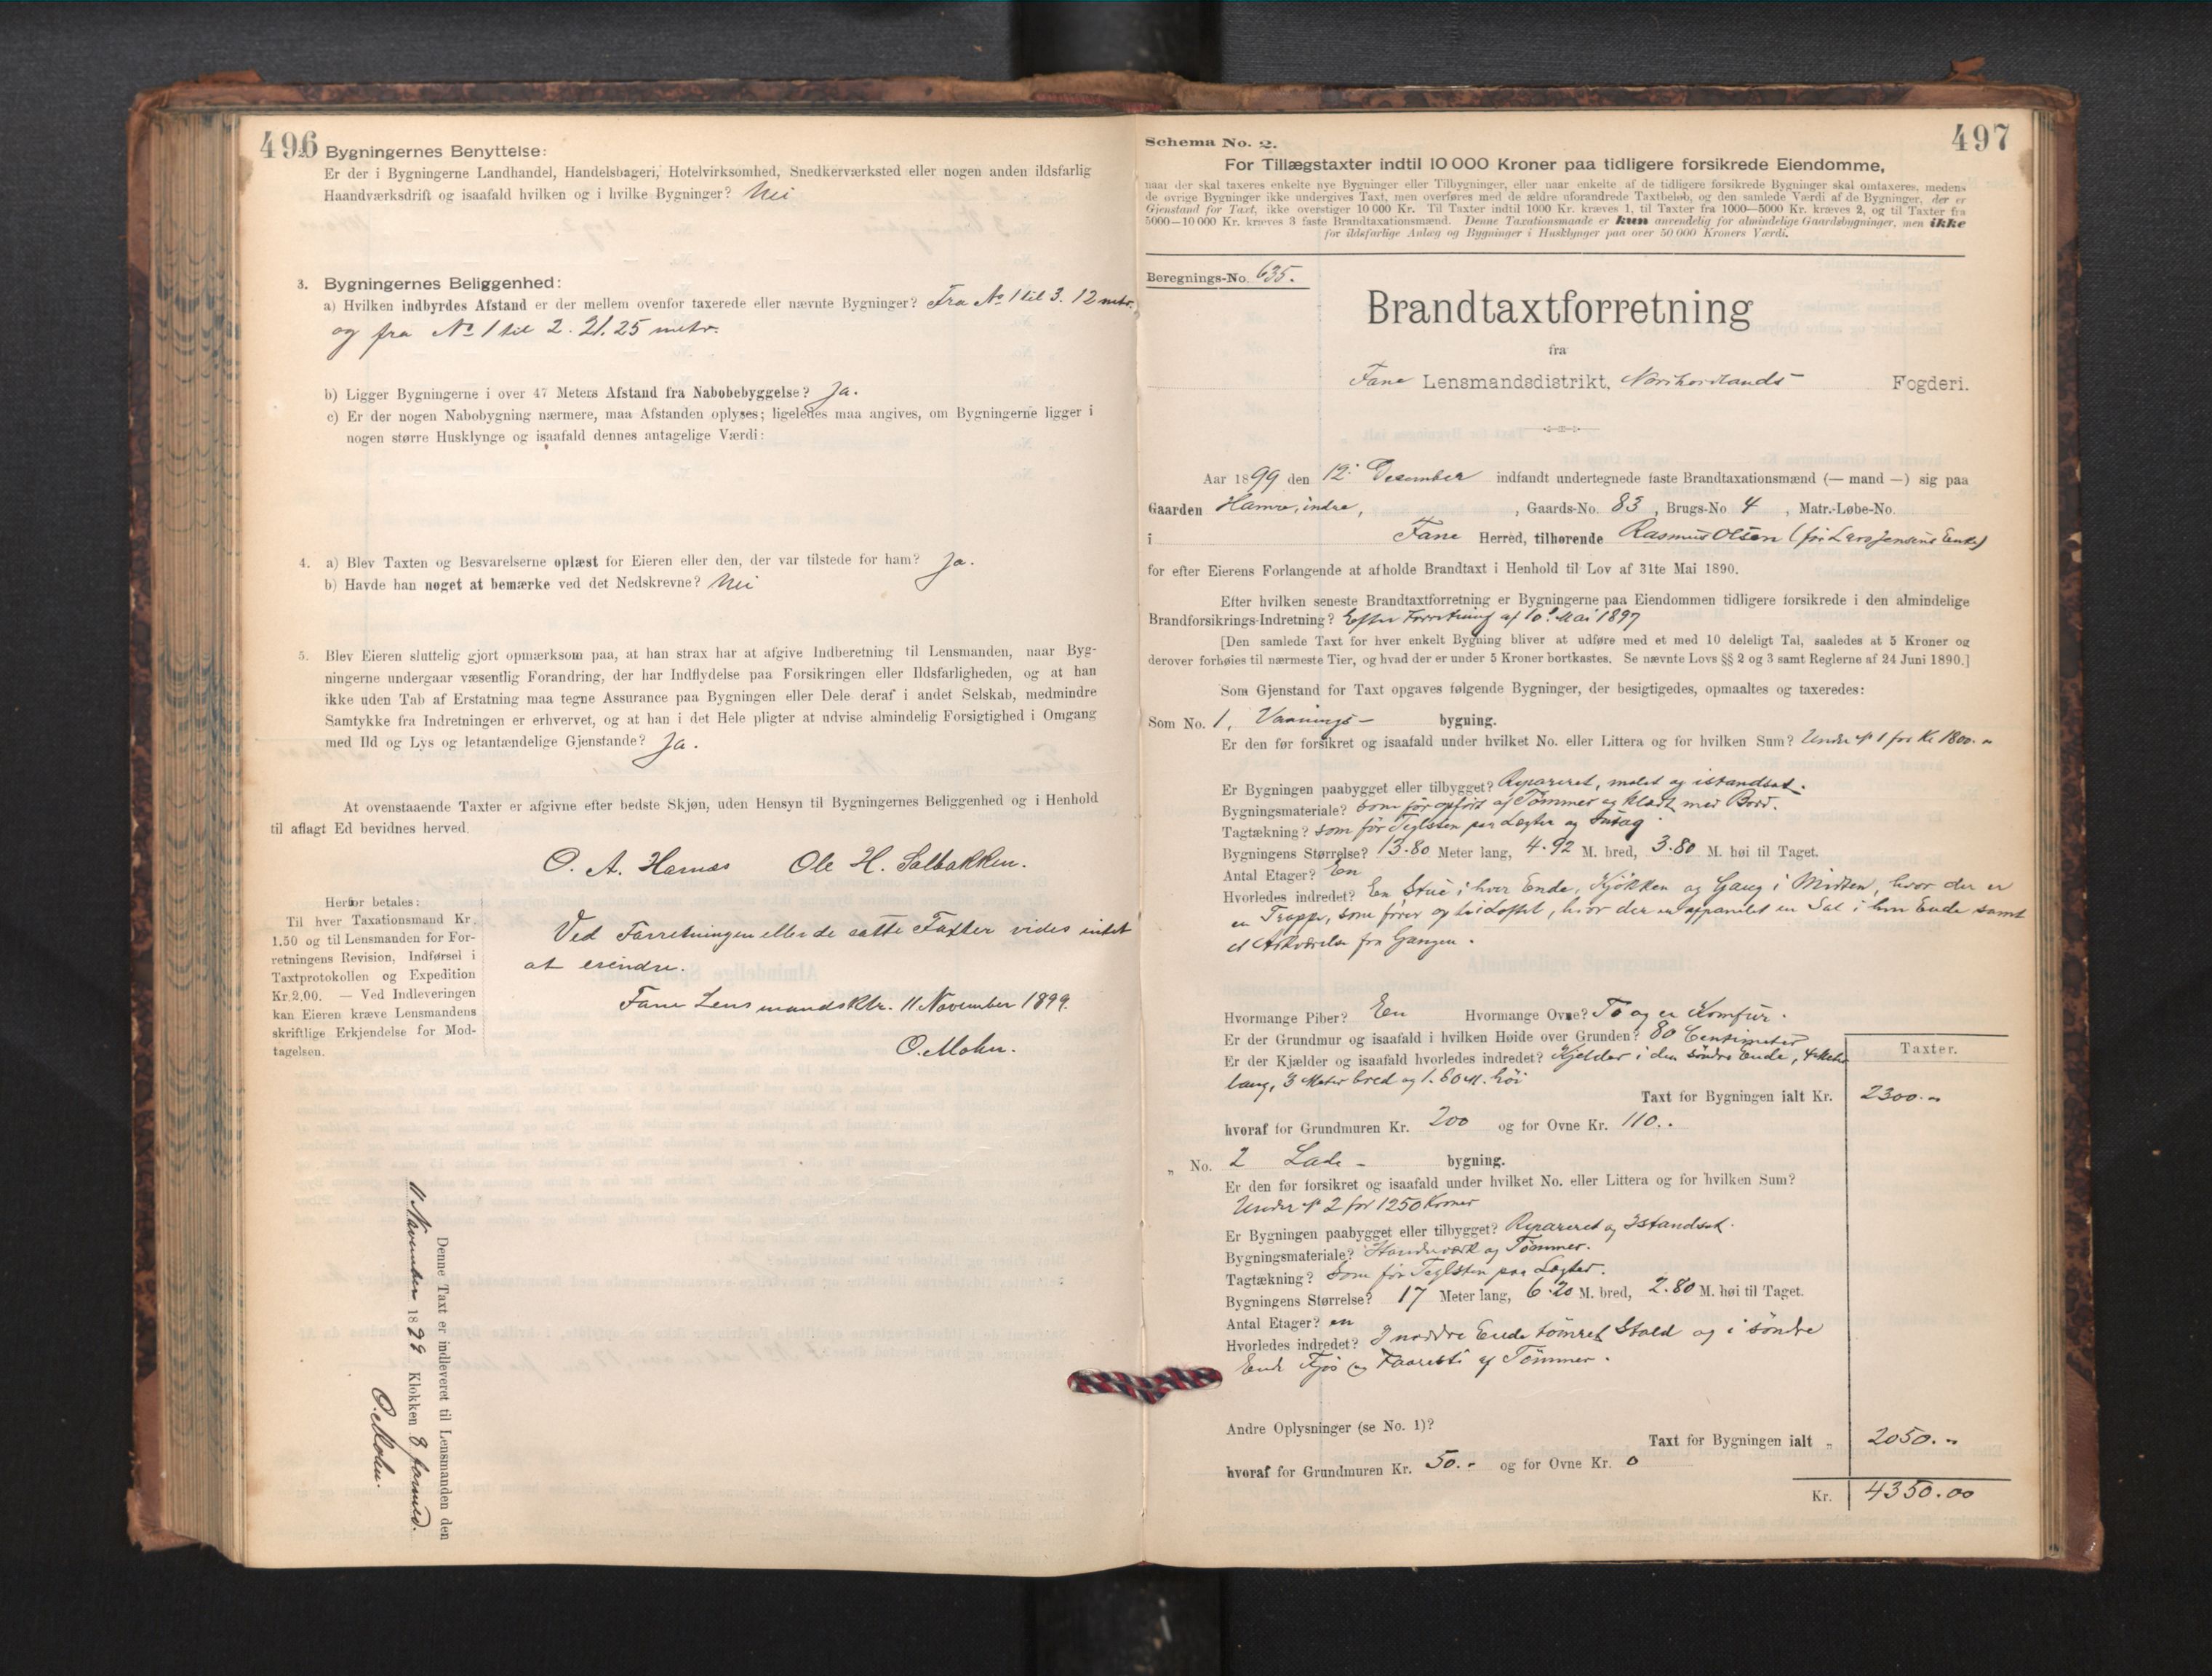 496
2. Bygningernes Benyttelse:
Er der i Bygningerne Landhandel, Handelsbageri, Hotelvirksomhed, Snedkerværksted eller nogen anden ildsfarlig
Haandværksdrift og isaafald hvilken og i hvilke Bygninger? Nei
3. Bygningernes Beliggenhed:
a) Hvilken indbyrdes Afstand er der mellem ovenfor taxerede eller nævnte Bygninger? Fra No 1 til 3. 12 mtr.
og fra No 1 til 2. 21.25 metr.
b) Ligger Bygningerne i over 47 Meters Afstand fra Nabobebyggelse? Ja.
c) Er der nogen Nabobygning nærmere, maa Afstanden oplyses; ligeledes maa angives, om Bygningerne ligger i
nogen større Husklynge og isaafald dennes antagelige Værdi:
4. a) Blev Taxten og Besvarelserne oplæst for Eieren eller den, der var tilstede for ham? Ja.
b) Havde han noget at bemærke ved det Nedskrevne? Nei
5. Blev Eieren sluttelig gjort opmærksom paa, at han strax har at afgive Indberetning til Lensmanden, naar Byg-
ningerne undergaar væsentlig Forandring, der har Indflydelse paa Forsikringen eller Ildsfarligheden, og at han
ikke uden Tab af Erstatning maa tegne Assurance paa Bygningen eller Dele deraf i andet Selskab, medmindre
Samtykke fra Indretningen er erhvervet, og at han i det Hele pligter at udvise almindelig Forsigtighed i Omgang
med Ild og Lys og letantændelige Gjenstande? Ja.
At ovenstaaende Taxter er afgivne efter bedste Skjøn, uden Hensyn til Bygningernes Beliggenhed og i Henhold
til aflagt Ed bevidnes herved.
O. A. Hamas Ole H. Salbakken.
Herfor betales:
Til hver Taxationsmand Kr.
1,50 og til Lensmanden for For-
retningens Revision, Indførsel i
Taxtprotokollen og Expedition
Kr. 2.00. — Ved Indleveringen
kan Eieren kræve Lensmandens
skriftlige Erkjendelse for Mod-
tagelsen.
Ved Forretningen eller de satte Taxter vides intet
at erindre.
Fane Lensmandsktr. 11 November 1899.
O. Mohn.
Denne Taxt er indleveret til Lensmanden den
11 November 1899 Klokken 8 formid.
O. Mohn.
497
Schema No. 2.
For Tillægstaxter indtil 10 000 Kroner paa tidligere forsikrede Eiendomme,
naar der skal taxeres enkelte nye Bygninger eller Tilbygninger, eller naar enkelte af de tidligere forsikrede Bygninger skal omtaxeres, medens
de øvrige Bygninger ikke undergives Taxt, men overføres med de ældre uforandrede Taxtbeløb, og den samlede Værdi af de Bygninger, der er
Gjenstand for Taxt, ikke overstiger 10 000 Kr. Til Taxter indtil 1000 Kr. kræves 1, til Taxter fra 1000—5000 Kr. kræves 2, og til Taxter fra
5000—10 000 Kr. kræves 3 faste Brandtaxationsmænd. Denne Taxationsmaade er kun anvendelig for almindelige Gaardsbygninger, men ikke
for ildsfarlige Anlæg og Bygninger i Husklynger paa over 50 000 Kroners Værdi.
Beregnings-No. 635.
Brandtaxtforretning
fra
Fane Lensmandsdistrikt, Nordhordlands Fogderi.
Aar 1899 den 12. Desember indfandt undertegnede faste Brandtaxationsmænd (— mand —) sig paa
Gaarden Hamre, indre, , Gaards-No. 83 , Brugs-No 4 , Matr.-Løbe-No.
i Fane Herred, tilhørende Rasmus Olsen (før Lars Jensens Enke)
for efter Eierens Forlangende at afholde Brandtaxt i Henhold til Lov af 31te Mai 1890.
Efter hvilken seneste Brandtaxtforretning er Bygningerne paa Eiendommen tidligere forsikrede i den almindelige
Brandforsikrings-Indretning? Efter Forretning af 10. Mai 1897
[Den samlede Taxt for hver enkelt Bygning bliver at udføre med et med 10 deleligt Tal, saaledes at 5 Kroner og
derover forhøies til nærmeste Tier, og hvad der er under 5 Kroner bortkastes. Se nævnte Lovs §§ 2 og 3 samt Reglerne af 24 Juni 1890.]
Som Gjenstand for Taxt opgaves følgende Bygninger, der besigtigedes, opmaaltes og taxeredes:
Som No. 1, Vaanings- bygning.
Er den før forsikret og isaafald under hvilket No. eller Littera og for hvilken Sum? Under No 1 for Kr 1800.-
Er Bygningen paabygget eller tilbygget? Repareret, malet og istandsat.
Bygningsmateriale? Som før opført af Tømmer og Klædt med Bord.
Tagtækning? som før Teglsten paa Lægter og
Bygningens Størrelse? 13.80 Meter lang, 4.92 M. bred, 3.80 M. høi til Taget.
Antal Etager? En
Hvorledes indredet? En Stue i hver Ende, Kjøkken og Gang i Midten, hvor der er
en Trappe, som fører op til Loftet, hvor der er oppanelet en Sal i hver Ende samt
et fra Gangen.
Hvormange Piber? En Hvormange Ovne? To og en Komfur.
Er der Grundmur og isaafald i hvilken Høide over Grunden? 80 Centimeter
Er der Kjælder og isaafald hvorledes indredet? Kjelder i den søndre Ende, 4 Meter
lang, 3 Meter bred og 1.80 M. høi
Taxter.
Taxt for Bygningen ialt Kr. 2300.-
hvoraf for Grundmuren Kr. 200 og for Ovne Kr. 110..
„ No. 2 Lade- bygning.
Er den før forsikret og isaafald under hvilket No. eller Littera og for hvilken Sum?
Under No 2 for 1250 Kroner
Er Bygningen paabygget eller tilbygget? Repareret og Istandsat.
Bygningsmateriale? Standværk og Tømmer.
Tagtækning? Som før Teglsten paa Lægter.
Bygningens Størrelse? 17 Meter lang, 6.20 M. bred, 2.80 M. høi til Taget.
Antal Etager? en
Hvorledes indredet? I nordre Ende tømret Stald og i søndre
Ende Fjøs og Faaresti af Tømmer.
Andre Oplysninger (se No. 1)?
Taxt for Bygningen ialt „ 2050.-
hvoraf for Grundmuren Kr. 50.- og for Ovne Kr. 0
Kr. 4350.00